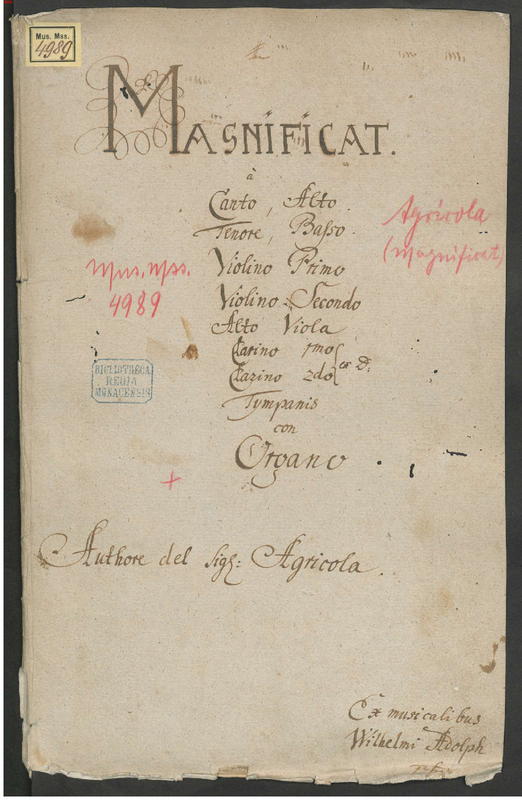 Mus. Mss.
4989
MAGNIFICAT.
à
Canto, Alto.
Tenore, Basso.
Agricola
(Magnificat)
Mus. Mss.
4989
Violino Primo
Violino Secondo
Alto Viola
Clarino 1mo
Clarino 2do
ex D:
Tympanis
con
Organo
BIBLIOTHECA
REGIA
MONACENSIS
Authore del Sigl: Agricola.
Ex musicalibus
Wilhelmi Adolph